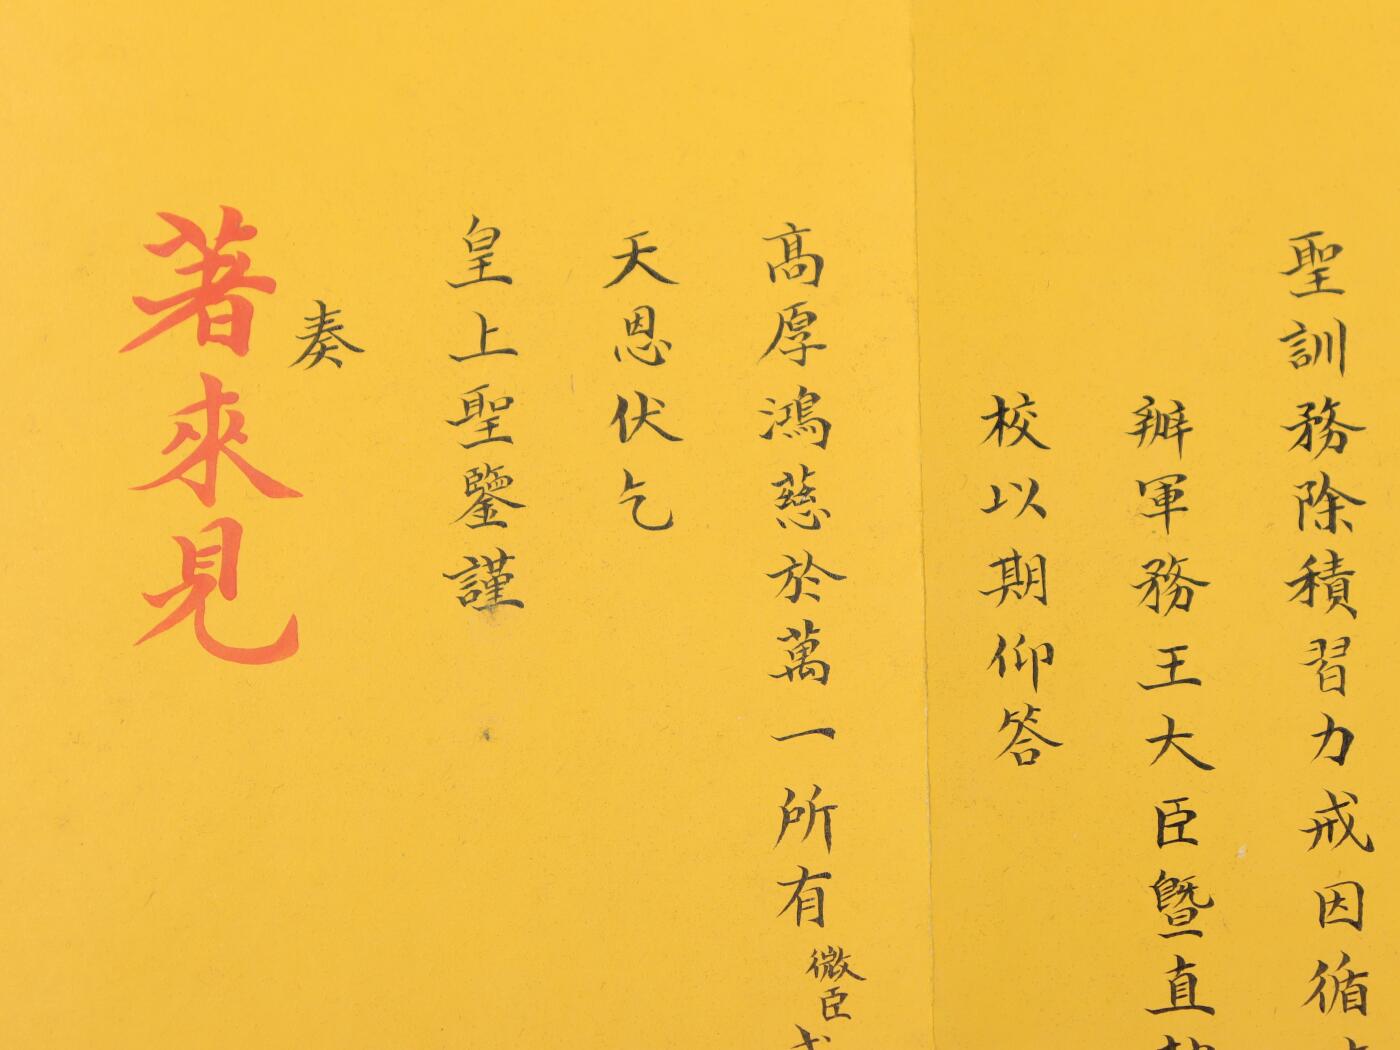 聖訓務除積習力戒因循
辦軍務王大臣暨直
校以期仰答
高厚鴻慈於萬一所有微臣
天恩伏乞
皇上聖鑒謹
奏
著來見